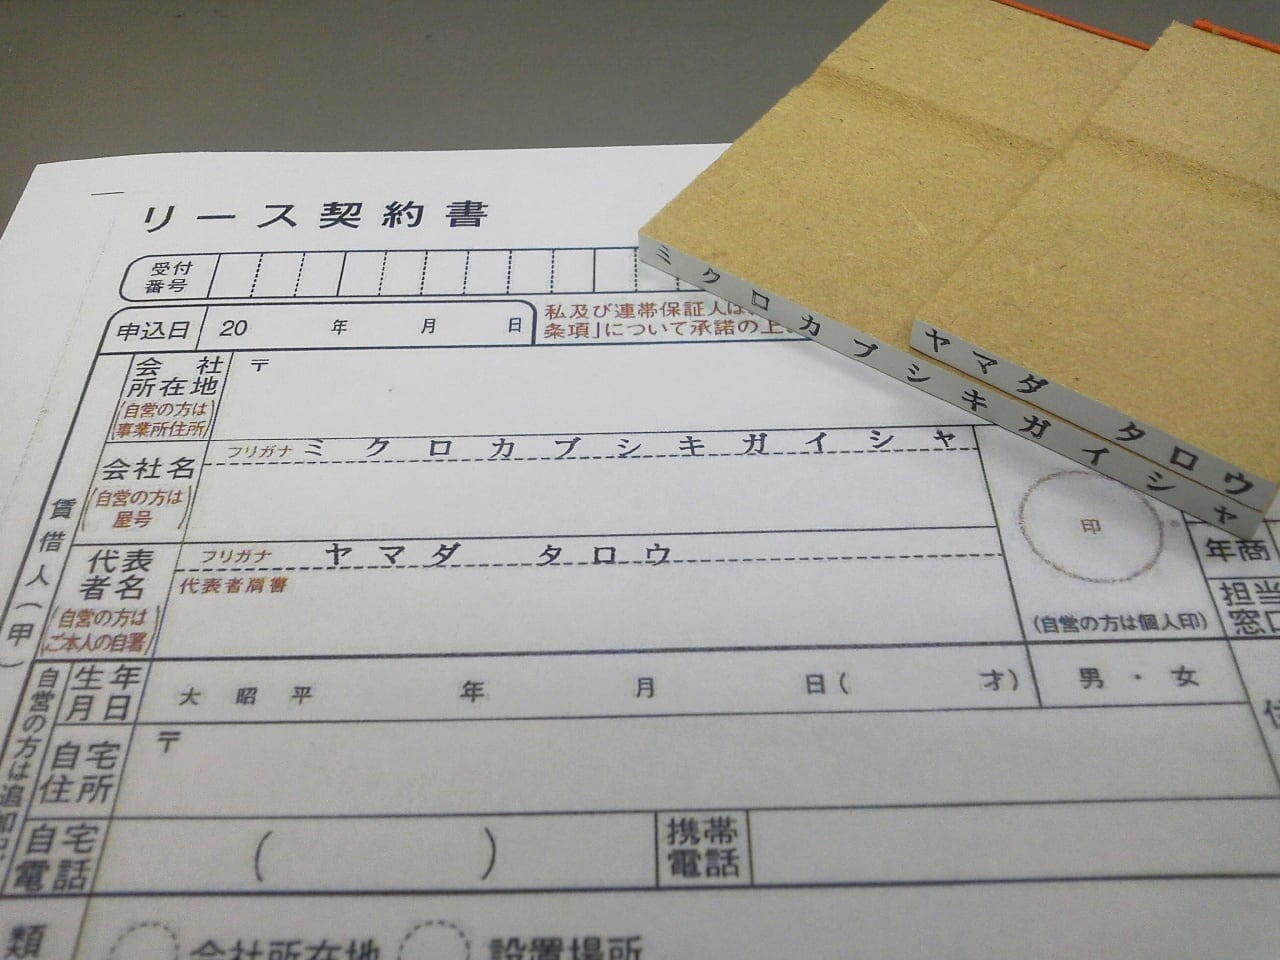 リース契約書
受付番号
申込日 20 年 月 日
私及び連帯保証人は、
条項」について承諾の上
会社所在地 〒
(自営の方は事業所住所)
フリガナ ミクロカブシキガイシャ
会社名
(自営の方は屋号)
フリガナ ヤマダ タロウ
代表者名 代表者肩書
(自営の方はご本人の自署)
印
(自営の方は個人印)
年商
担当
窓口
賃借人(甲)
自営の方は追加記
生年月日 大 昭 平 年 月 日( 才) 男・女
自宅住所 〒
自宅電話 ( ) 携帯電話
類 会社所在地 設置場所
ミクロカブシキガイシャ
ヤマダ タロウ